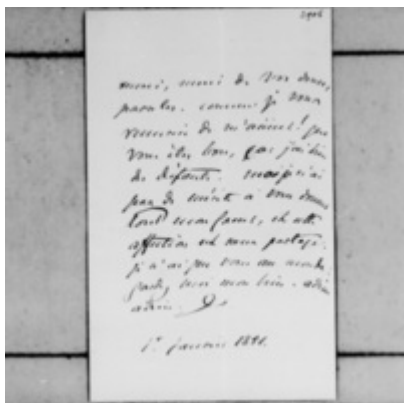 merci, merci de vos douces
paroles. comme je vous
remercie de m'aimer! que
vous êtes bon, car j'ai bien
des défauts. mais je n'ai
pas de mérite à vous donner
tout mon
affection est sans partage.
je n'ai que vous au monde.
gardez moi mon bien. adieu
adieu.
1er janvier 1881.